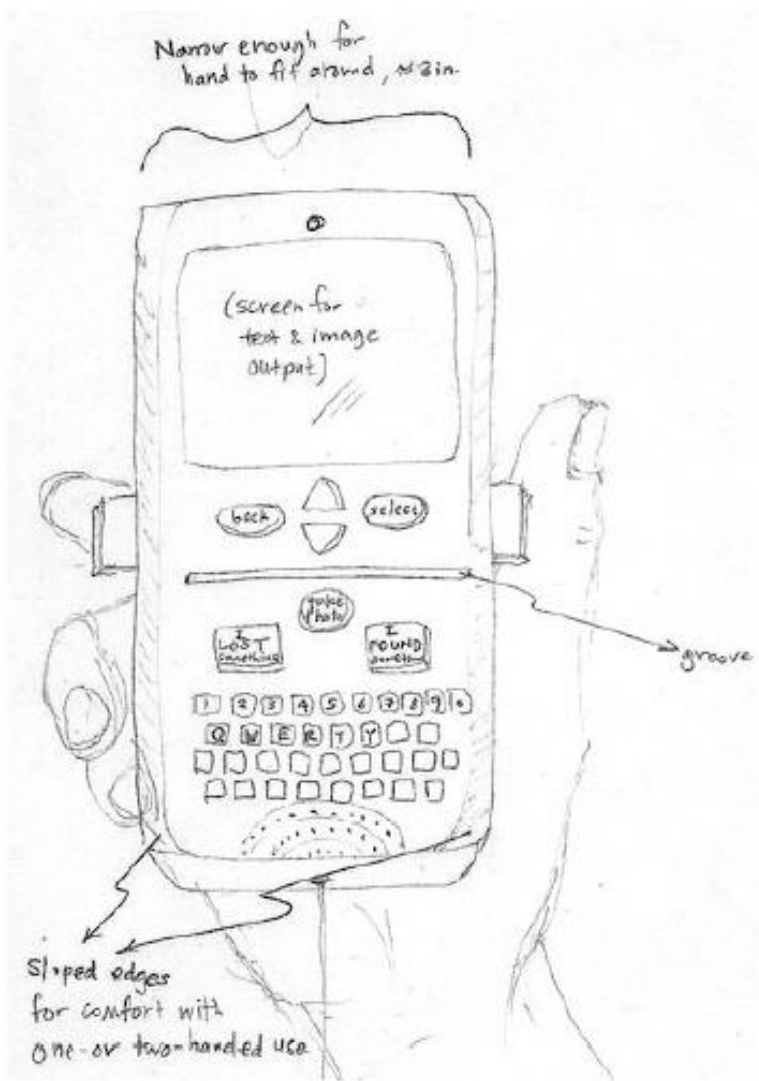 Narrow enough for
hand to fit around, ≈3in.
(screen for
text & image
output)
back
select
take
photo
I
LOST
something
I
FOUND
something
groove
1 2 3 4 5 6 7 8 9 0
Q W E R T Y
Sloped edges
for comfort with
one-or two-handed use